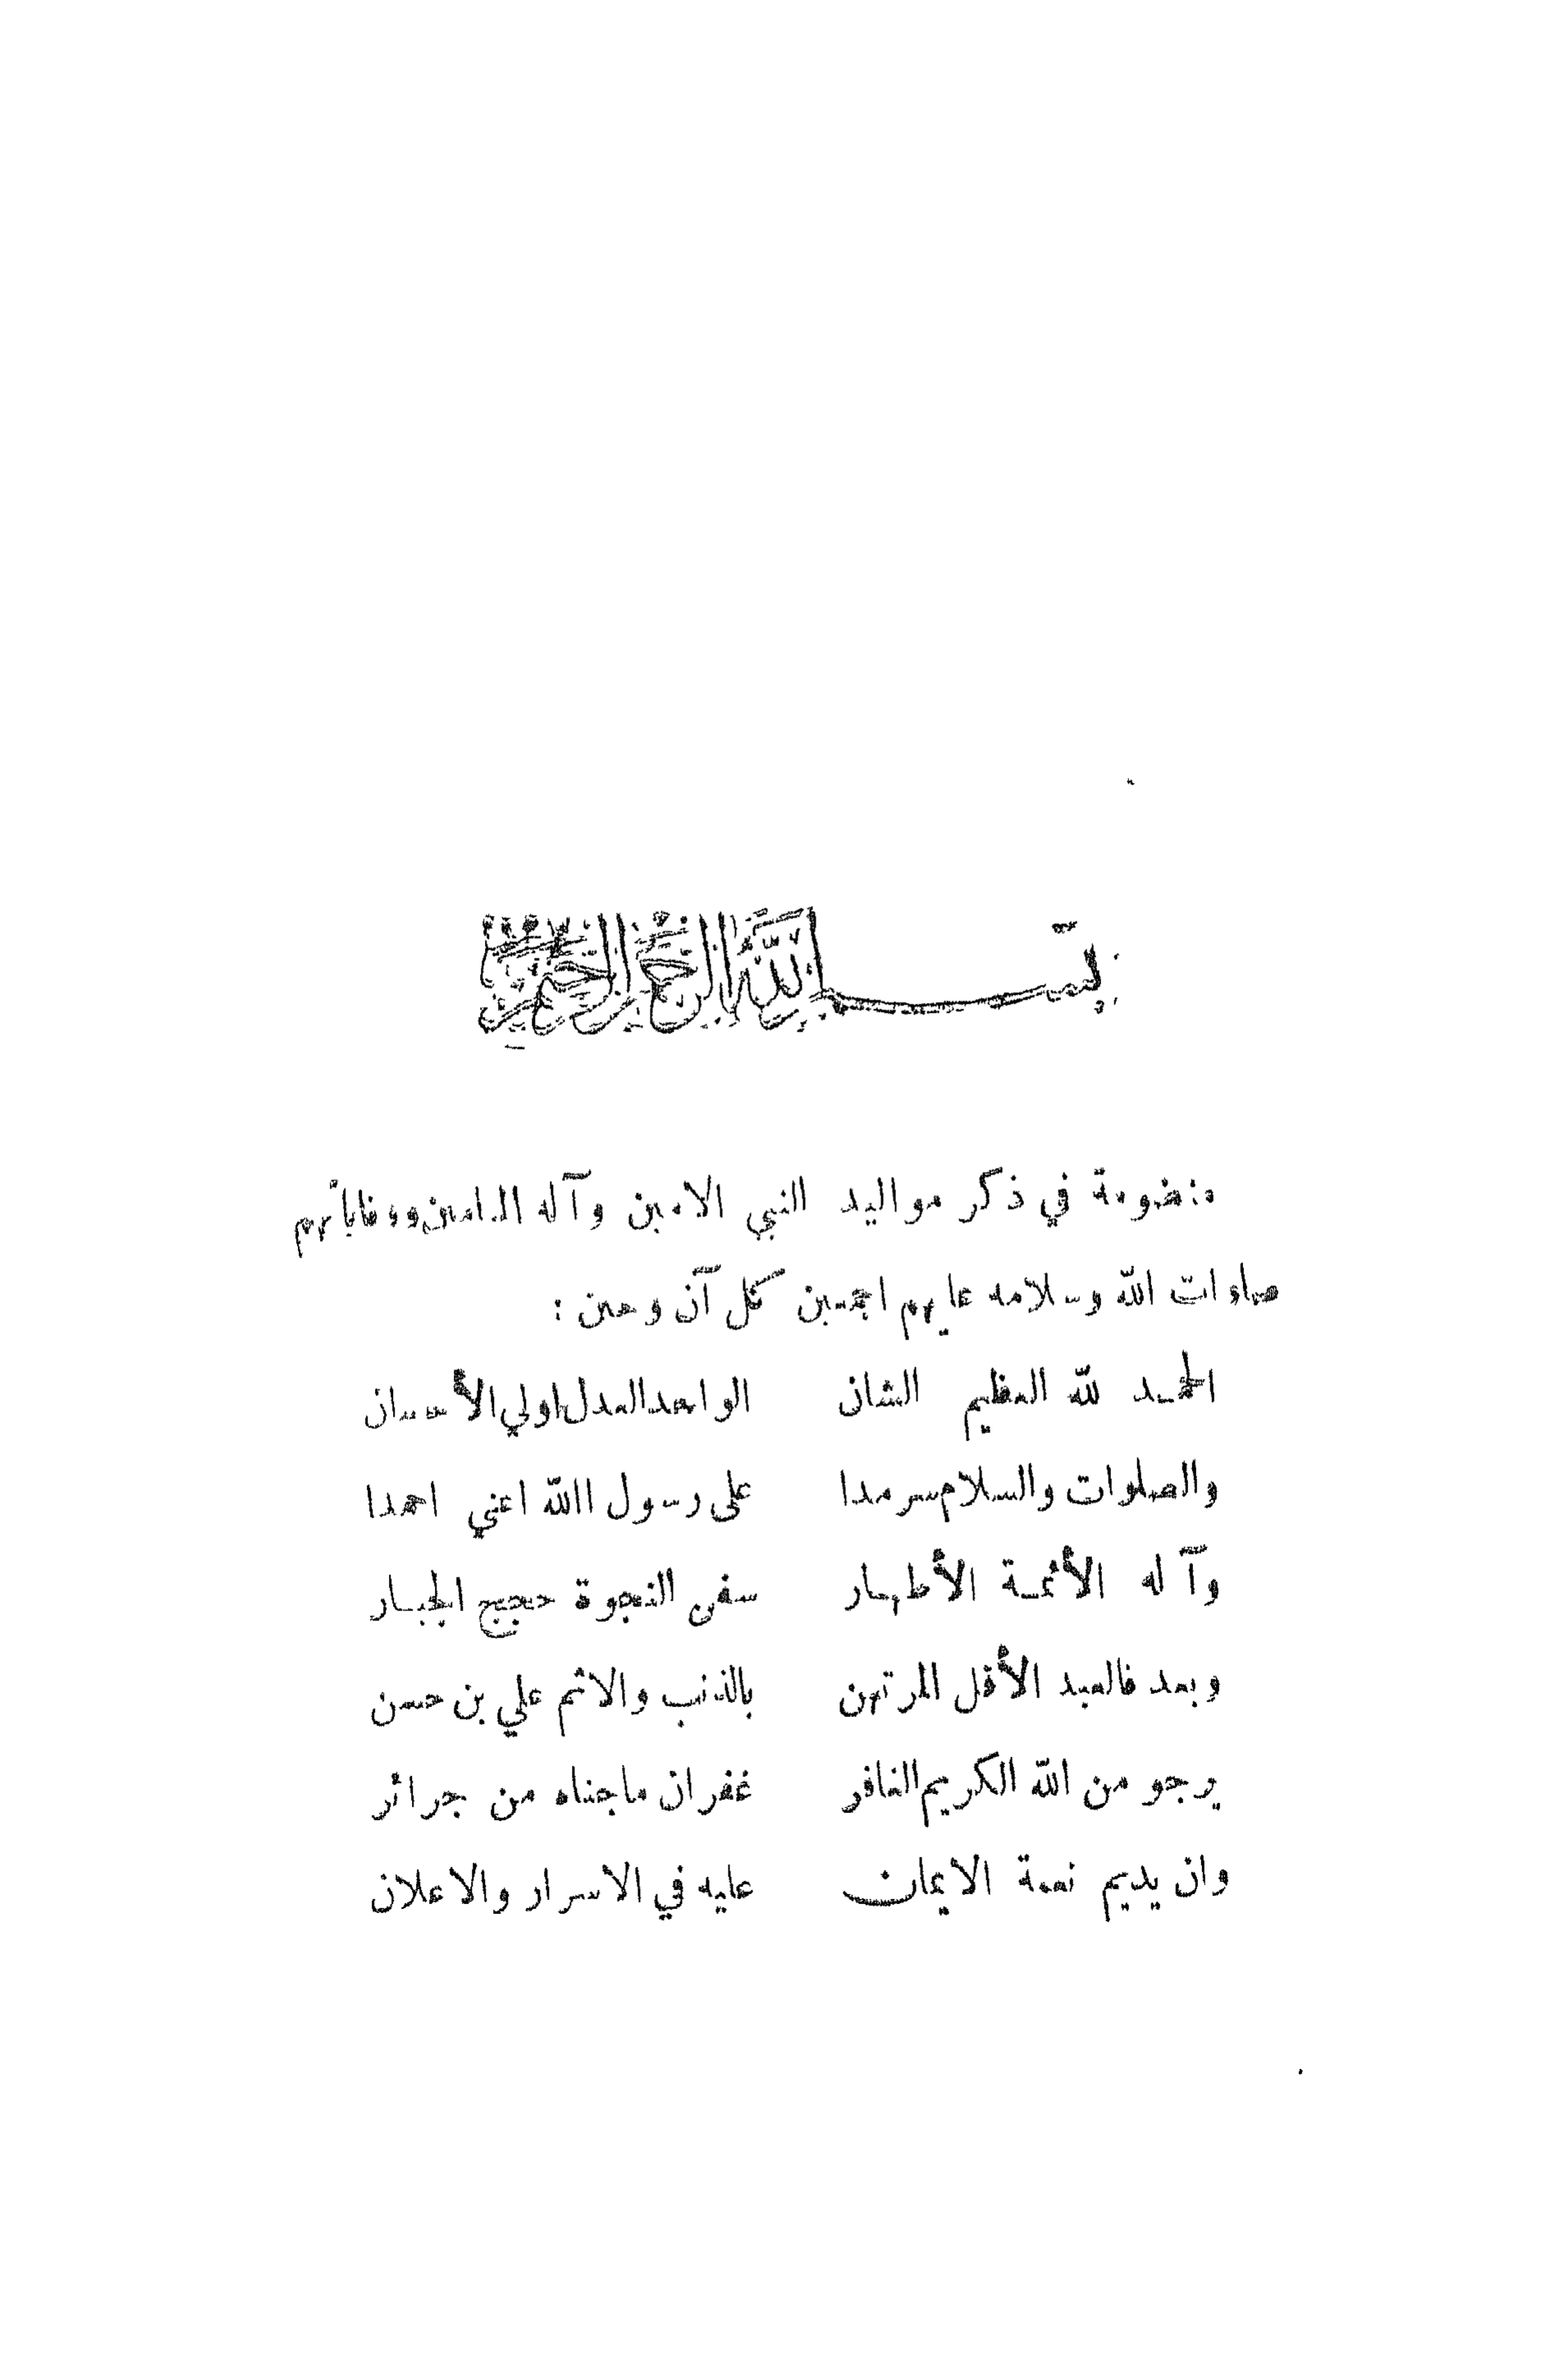 بسم الله الرحمن الرحيم
منضومة في ذكر مواليد النبي الامين وآله الميامين ووفاياتهم
صلوات الله وسلامه عليهم اجمعين كل آن وحين :
الحمد لله العظيم الشان الواحد العدل اولي الأحسان
والصلوات والسلام سرمدا على رسول االله اعني احمدا
وآله الأئمة الأطهار سفن النجوة حجج الجبار
وبعد فالعبد الأقل المرتهن بالذنب والاثم علي بن حسن
يرجو من الله الكريم الغافر غفران ماجناه من جرائر
وان يديم نعمة الايمان عليه في الاسرار والاعلان